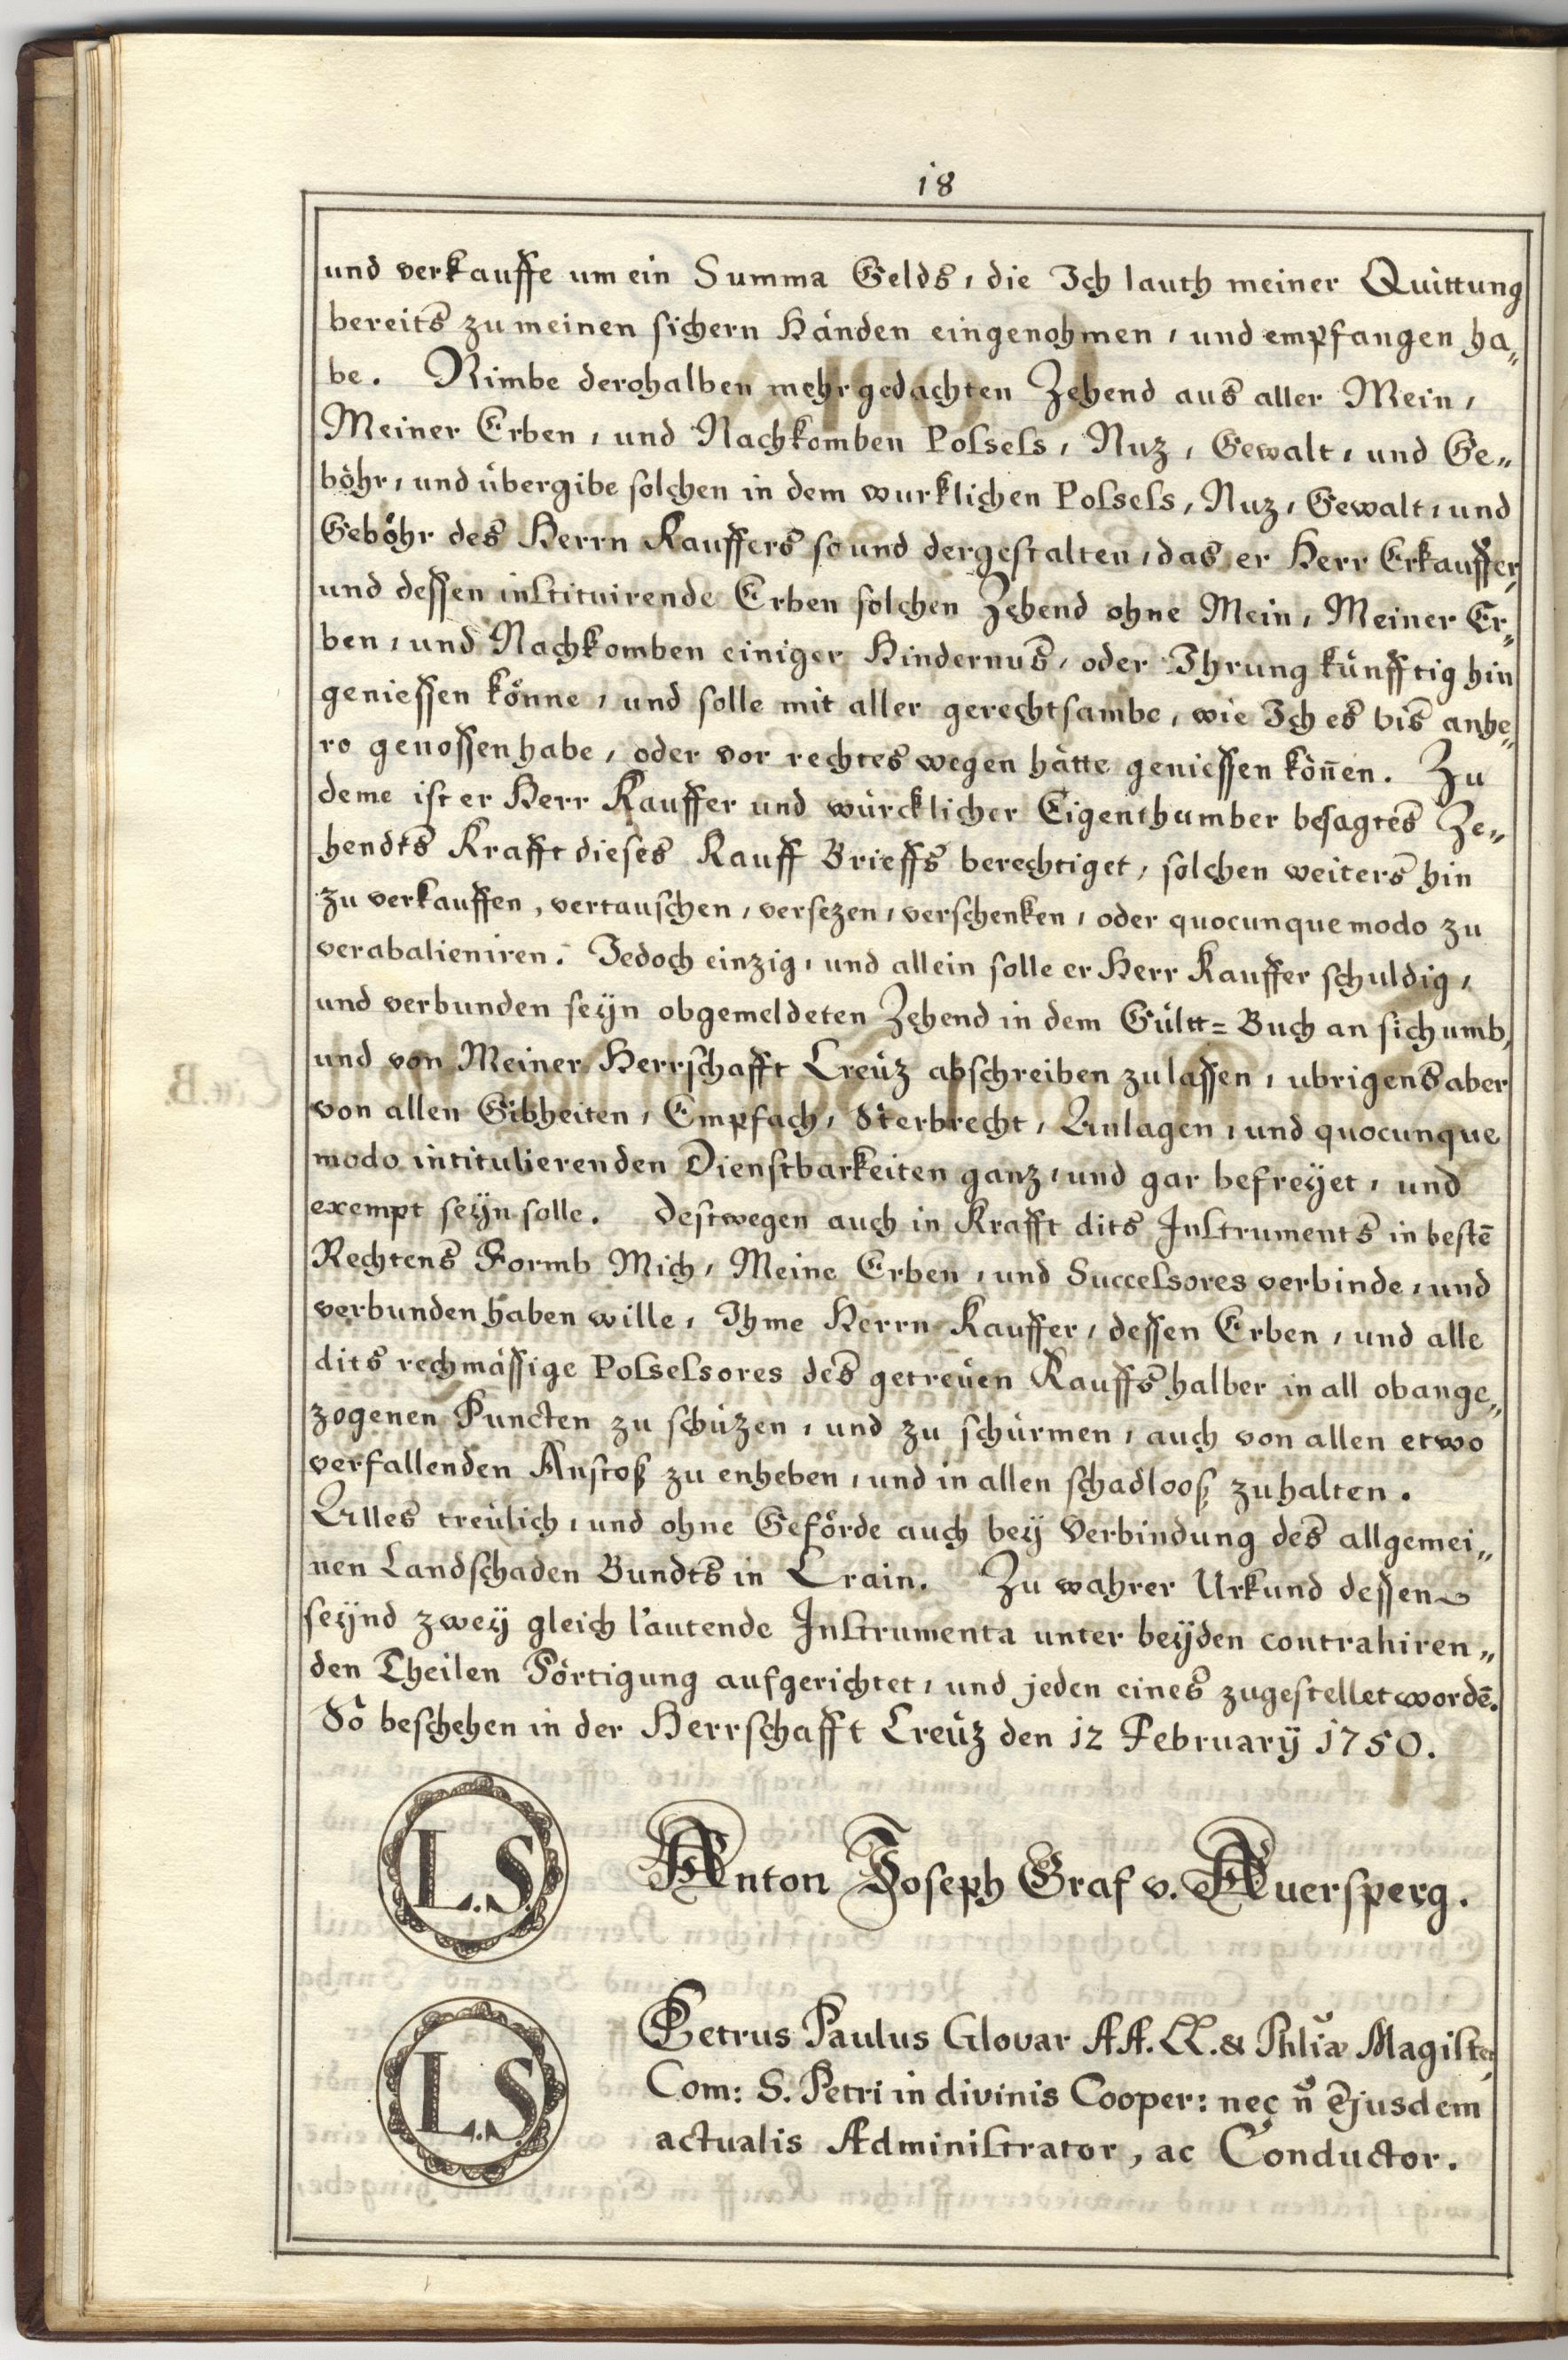 18
und verkauffe um ein Summa Gelds, die Ich lauth meiner Quittung
bereits zu meinen sichern Händen eingenohmen, und empfangen ha„
be. Nimbe derohalben mehrgedachten Zehend aus aller Mein,
Meiner Erben, und Nachkomben Possess, Nuz, Gewalt, und Ge„
böhr, und übergibe solchen in dem wurklichen Possess, Nuz, Gewalt, und
Geböhr des Herrn Kauffers so und dergestalten, das er Herr Erkauffer,
und dessen instituirende Erben solchen Zehend ohne Mein, Meiner Er„
ben, und Nachkomben einiger Hindernus, oder Ihrung künfftig hin
geniessen könne, und solle mit aller gerechtsambe, wie Ich es bis anhe„
ro genossen habe, oder vor rechtes wegen hätte geniessen köñen. Zu
deme ist er Herr Kauffer und würcklicher Eigenthumber besagtes Ze„
hendts Krafft dieses Kauff Brieffs berechtiget, solchen weiters hin
zu verkauffen, vertauschen, versezen, verschenken, oder quocunque modo zu
verabalieniren. Jedoch einzig, und allein solle er Herr Kauffer schuldig,
und verbunden seÿn obgemeldeten Zehend in dem Gültt= Buch an sich umb,
und von Meiner Herrschafft Creüz abschreiben zu lassen, ubrigens aber
von allen Gibheiten, Empfach, Sterbrecht, Anlagen, und quocunque
modo intitulierenden Dienstbarkeiten ganz, und gar befreÿet, und
exempt seÿn solle. Destwegen auch in Krafft dits Instruments in bestē
Rechtens Formb Mich, Meine Erben, und Successores verbinde, und
verbunden haben wille, Ihme Herrn Kauffer, dessen Erben, und alle
dits rechmässige Possessores des getreüen Kauffs halber in all obange„
zogenen Puncten zu schüzen, und zu schürmen, auch von allen etwo
verfallenden Anstoß zu enheben, und in allen schadlooß zuhalten.
Alles treülich, und ohne Geförde auch beÿ Verbindung des allgemei„
nen Landschaden Bundts in Crain. Zu wahrer Urkund dessen
seÿnd zweÿ gleich lautende Instrumenta unter beÿden contrahiren„
den Theilen Förtigung aufgerichtet, und jeden eines zugestellet wordē.
So beschehen in der Herrschafft Creüz den 12 Februarÿ 1750.
L.S. Anton Joseph Graf v. Auersperg.
L.S. Petrus Paulus Glovar AA. LL. & Phliæ Magister
Com: S. Petri in divinis Cooper: nec ñ ejusdem
actualis Administrator, ac Conductor.